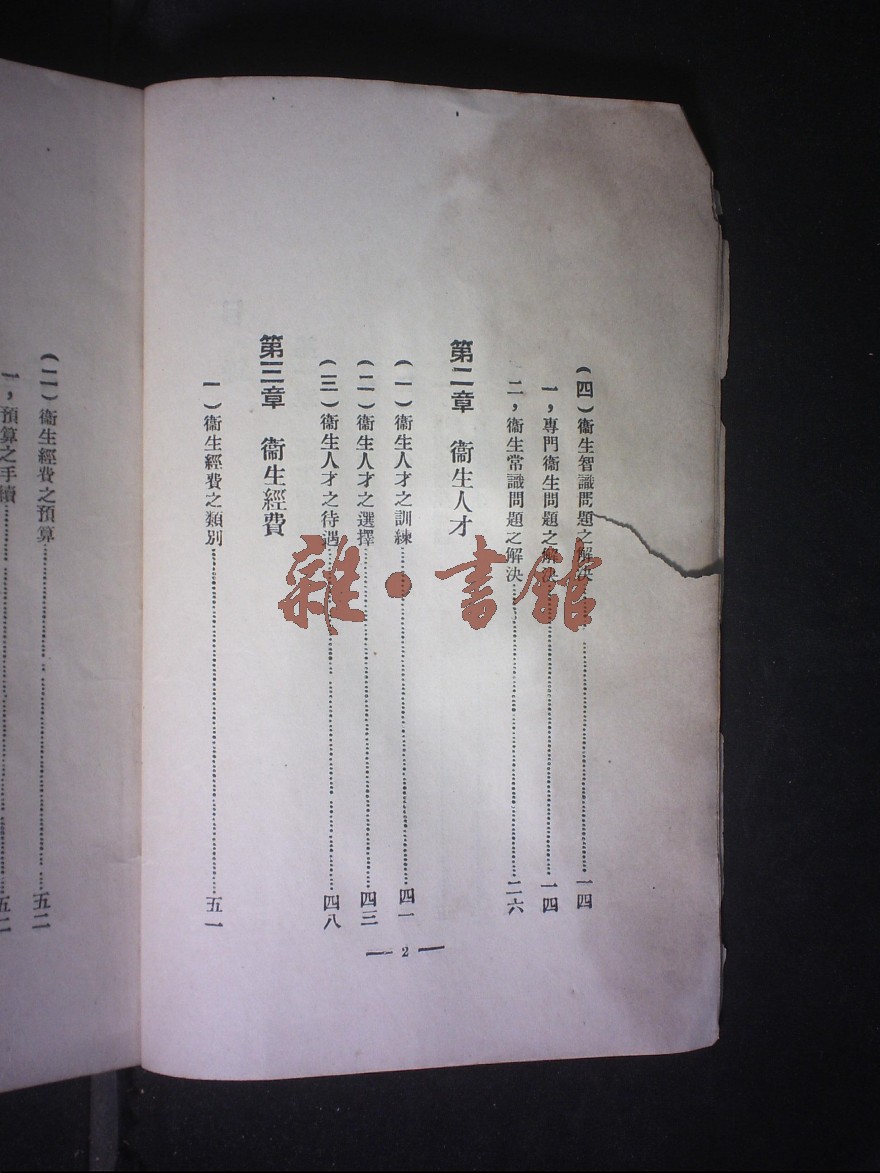 (四)衞生智識問題之解決…………一四
一,專門衞生問題之解決…………一四
二,衞生常識問題之解決…………二六
第二章 衞生人才
(一)衞生人才之訓練…………四一
(二)衞生人才之選擇…………四三
(三)衞生人才之待遇…………四八
第三章 衞生經費
一)衞生經費之類別…………五一
— 2 —
(二)衞生經費之預算…………五二
一,預算之手續…………五二
雜·書館